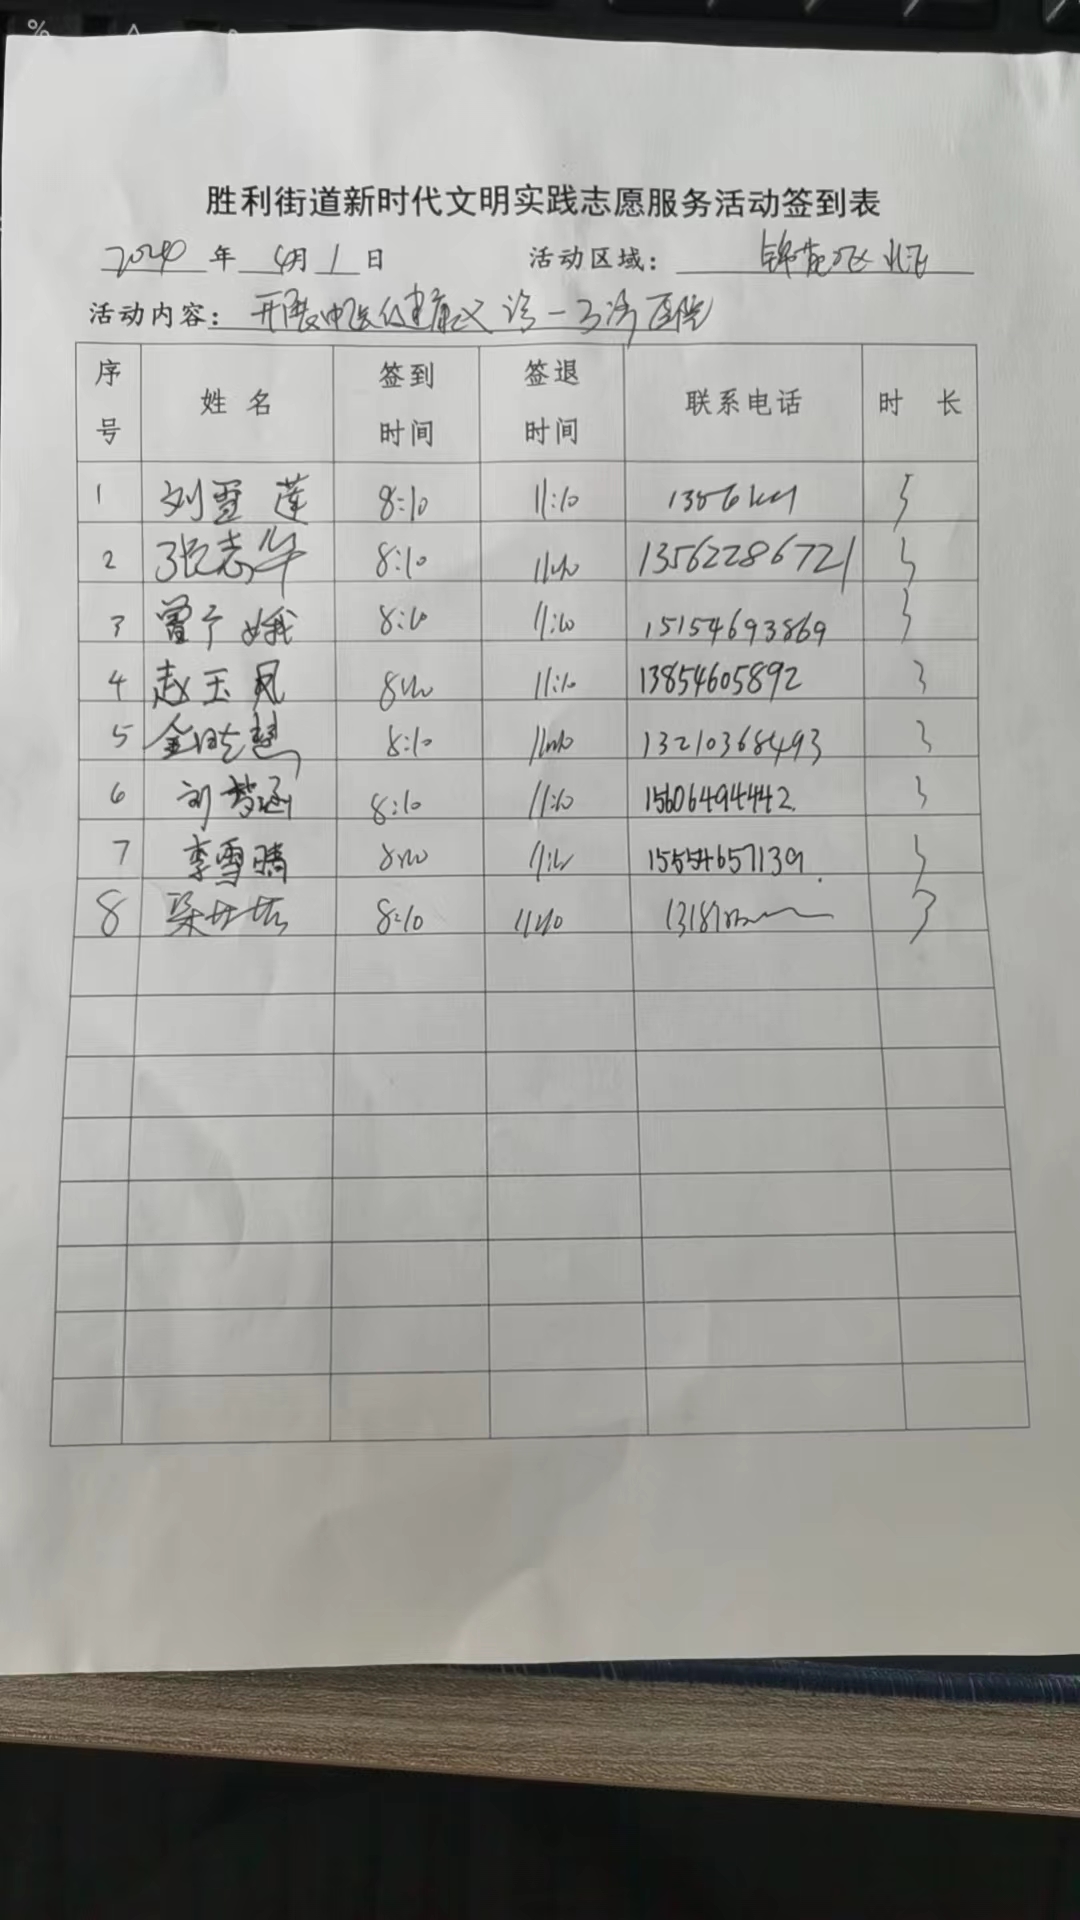 胜利街道新时代文明实践志愿服务活动签到表
年 4月 1 日 活动区域：
活动内容：开展中医健康义诊一 医院
序号 姓名 签到时间 签退时间 联系电话 时长
1 刘雪莲 8:10 11:10 3
2 张志华 8:10 11:10 13562286721 3
3 曾 娥 8:10 11:10 15154693869 3
4 赵玉凤 8:10 11:10 13854605892 3
5 金晓慧 8:10 11:10 13210368493 3
6 刘梦涵 8:10 11:10 15606494442 3
7 李雪晴 8:10 11:10 15554657139 3
8 8:10 11:10 3